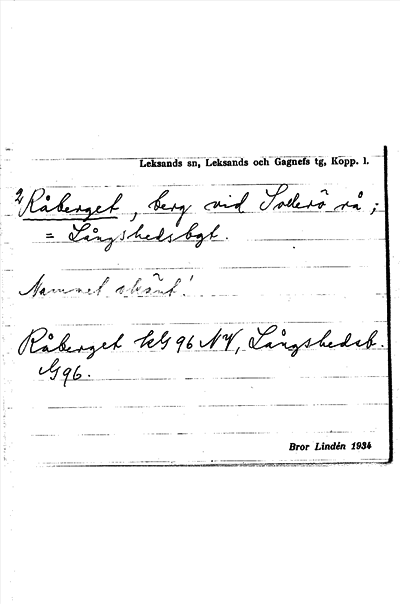 Leksands sn, Leksands och Gagnefs tg, Kopp. l.
2/ Råberget, berg vid Sollerö rå;
= Långshedsbgt.
Namnet okänt!
Råberget kG 96 NV, Långshedsb.
G 96.
Bror Lindén 1934